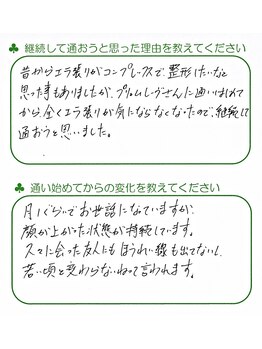 ♣ 継続して通おうと思った理由を教えてください
昔からエラ張りがコンプレックスで、整形したいなと
思った事もありましたが、プリュムレーヴさんに通いはじめて
から、全くエラ張りが気にならなくなったので、継続して
通おうと思いました。
♣ 通い始めてからの変化を教えてください
月1ぐらいでお世話になっていますが、
顔が上がった状態が持続しています。
久々に会った友人にもほうれい線も出てないし、
若い頃と変わらないねって言われます。